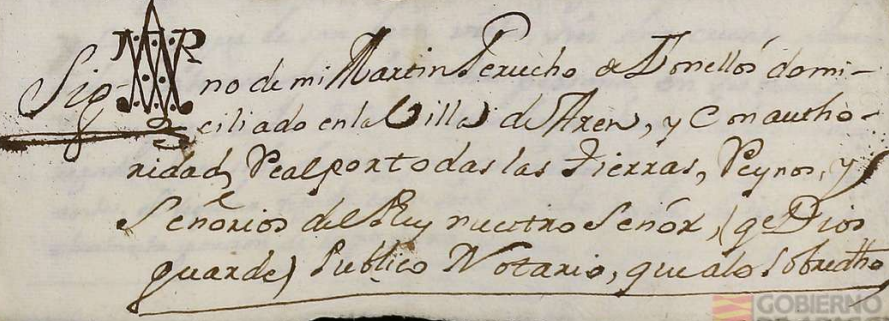 Sig-no de mi Martin Perucho de Tonellos domi-
ciliado en la Villa de Aren, y Con autho-
ridad Real por todas las tierras, Reynos, y
Señorios del Rey nuestro Señor, (qe Dios
guarde) Publico Notario, que a lo sobredho
GOBIERNO
DE ARAGON